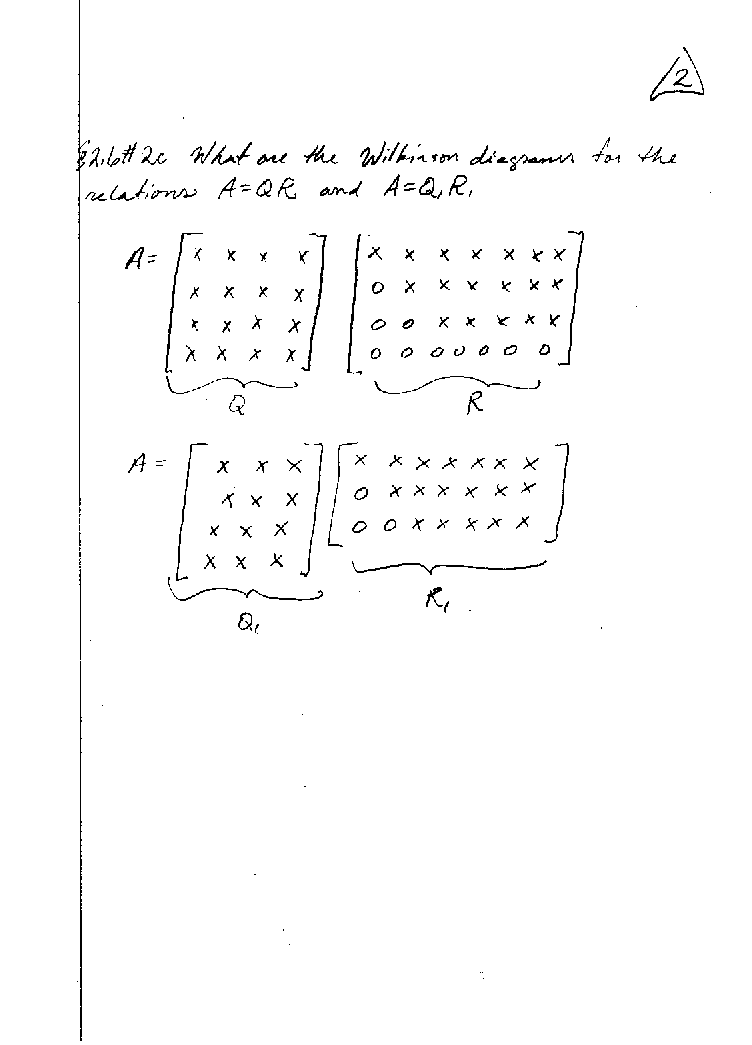 2
§2.6#2c What are the Wilkinson diagrams for the
relations A=QR and A=Q₁R₁
A= [ x x x x ] [ x x x x x x x ]
x x x x 0 x x x x x x
x x x x 0 0 x x x x x
x x x x 0 0 0 0 0 0 0
Q R
A= [ x x x ] [ x x x x x x x ]
x x x 0 x x x x x x
x x x 0 0 x x x x x
x x x
Q₁ R₁